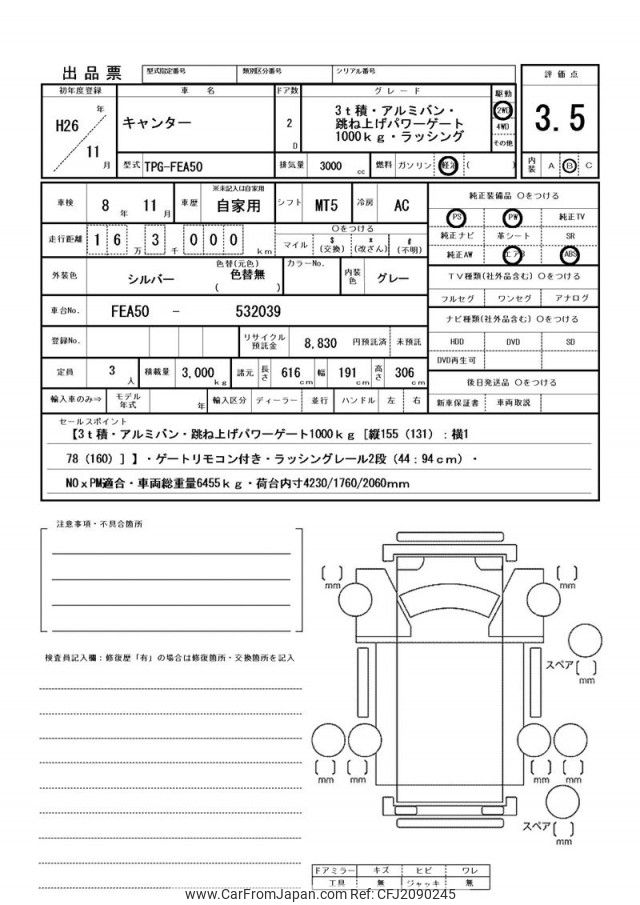 出品票 型式指定番号 類別区分番号 シリアル番号
初年度登録 車名 ドア数 グレード 駆動 評価点
H26年 キャンター 2D 3t積・アルミバン・ 2WD 3.5
跳ね上げパワーゲート 4WD
1000kg・ラッシング その他
11月 型式 TPG-FEA50 排気量 3000cc 燃料 ガソリン 軽油 ( ) 内装 A B C
車検 8年 11月 車歴 ※未記入は自家用 自家用 シフト MT5 冷房 AC 純正装備品 ○をつける
PS PW 純正TV
走行距離 16万3千000km ○をつける
マイル $(交換) *(改ざん) #(不明) 純正ナビ 革シート SR
純正AW エアB ABS
外装色 シルバー 色替(元色) 色替無 ( ) カラーNo. 内装色 グレー TV種類(社外品含む) ○をつける
フルセグ ワンセグ アナログ
車台No. FEA50 - 532039 ナビ種類(社外品含む) ○をつける
登録No. リサイクル預託金 8,830 円預託済 未預託 HDD DVD SD
DVD再生可
定員 3人 積載量 3,000kg 諸元 長さ 616cm 幅 191cm 高さ 306cm 後日発送品 ○をつける
輸入車のみ⇒ モデル年式 年 輸入区分 ディーラー 並行 ハンドル 左 右 新車保証書 車両取説
セールスポイント
【3t積・アルミバン・跳ね上げパワーゲート1000kg[縦155(131):横1
78(160)]】・ゲートリモコン付き・ラッシングレール2段(44:94cm)・
NOxPM適合・車両総重量6455kg・荷台内寸4230/1760/2060mm
注意事項・不具合箇所
検査員記入欄:修復歴「有」の場合は修復箇所・交換箇所を記入
mm mm
スペア mm
mm mm mm mm
スペア mm
ドアミラー キズ ヒビ ワレ
工具 無 ジャッキ 無
www.CarFromJapan.com Ref: CFJ2090245